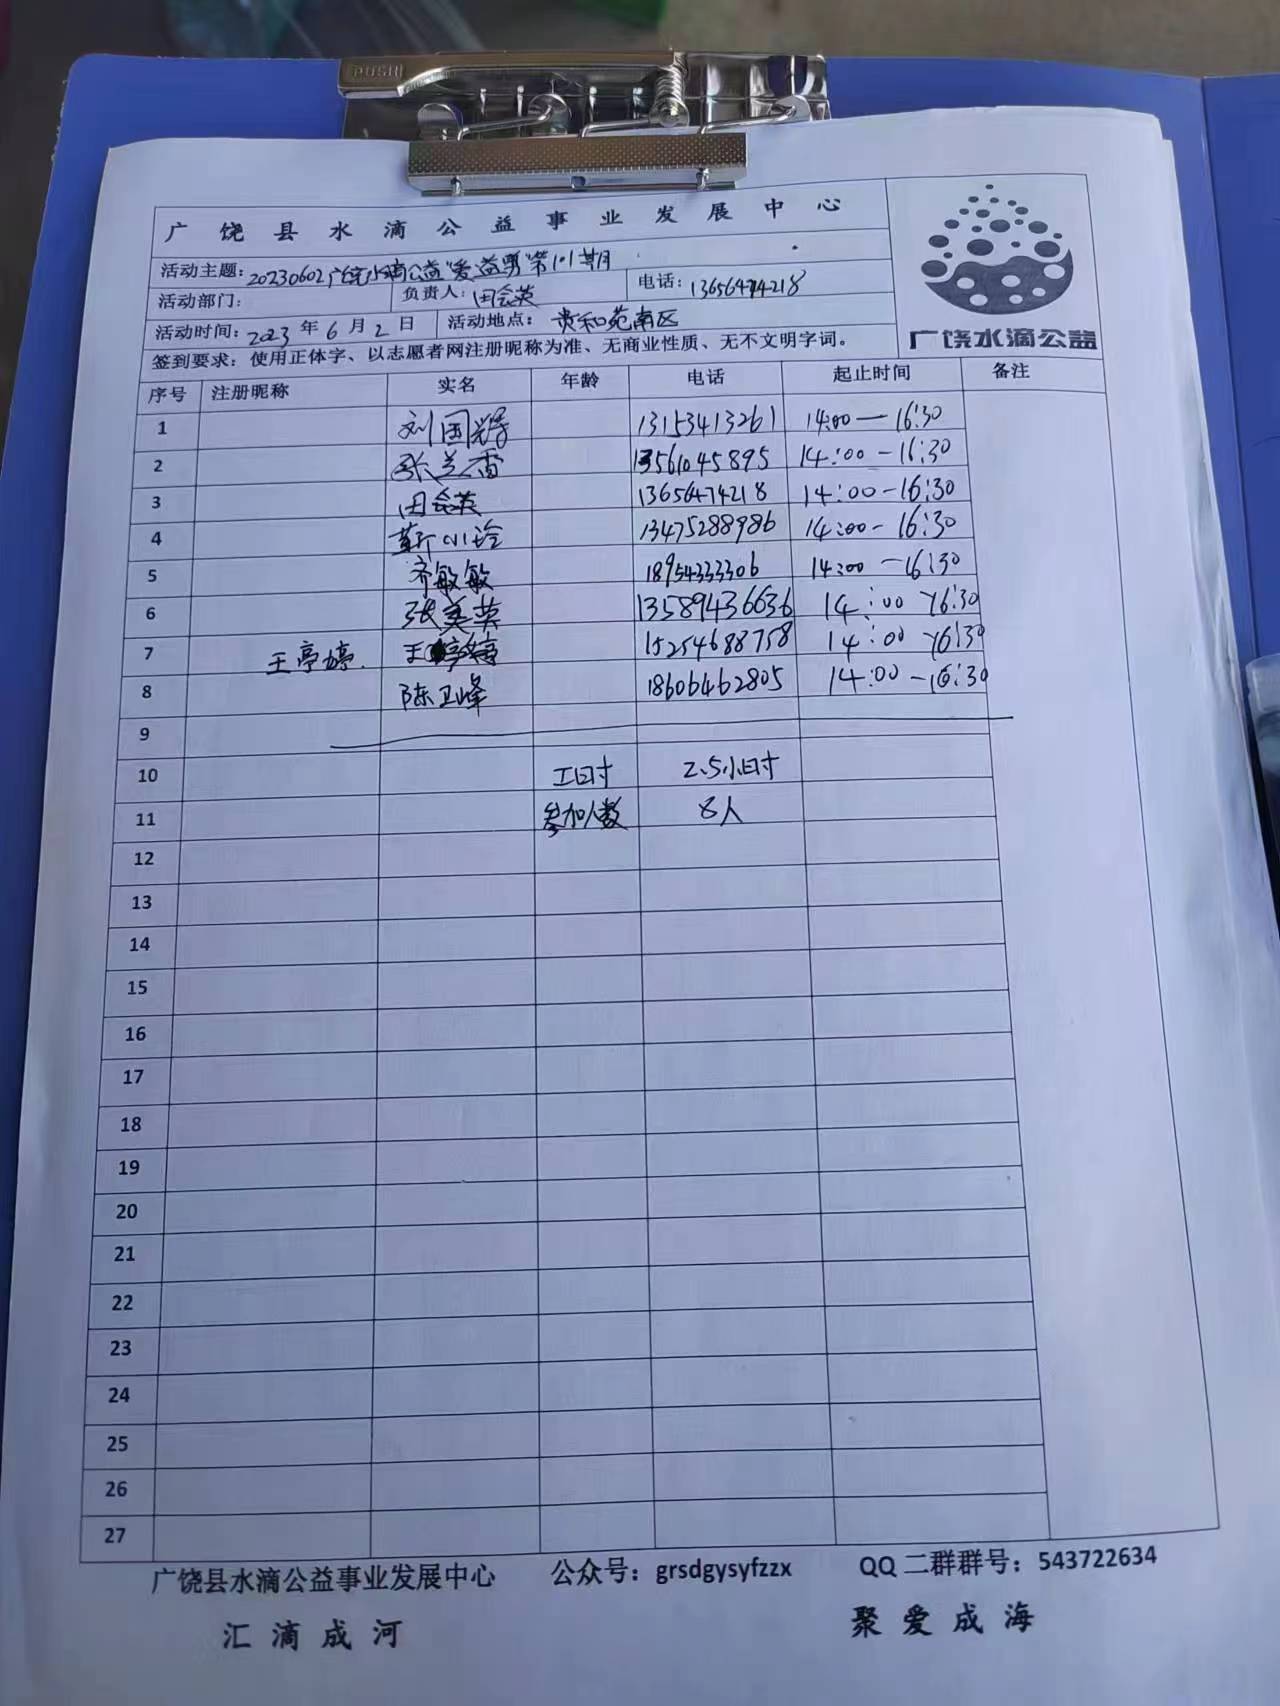 PUSH
广饶县水滴公益事业发展中心
活动主题：20230602广饶水滴公益"爱益剪"第101期
活动部门： 负责人：田会英 电话：13656474218
活动时间：2023年6月2日 活动地点：贵和苑南区
签到要求：使用正体字、以志愿者网注册昵称为准、无商业性质、无不文明字词。
广饶水滴公益
序号 注册昵称 实名 年龄 电话 起止时间 备注
1 刘国 13153413261 14:00—16:30
2 张兰雷 13561045895 14:00-16:30
3 田会英 13656474218 14:00-16:30
4 靳小玲 13475288986 14:00-16:30
5 齐敏敏 18954333306 14:00-16:30
6 张美英 13589436636 14:00-16:30
7 王亭婷. 王婷 15254688758 14:00-16:30
8 陈卫峰 18606462805 14:00-16:30
9
10 工时 2.5小时
11 参加人数 8人
12
13
14
15
16
17
18
19
20
21
22
23
24
25
26
27
广饶县水滴公益事业发展中心 公众号：grsdgysyfzzx QQ二群群号：543722634
汇滴成河 聚爱成海